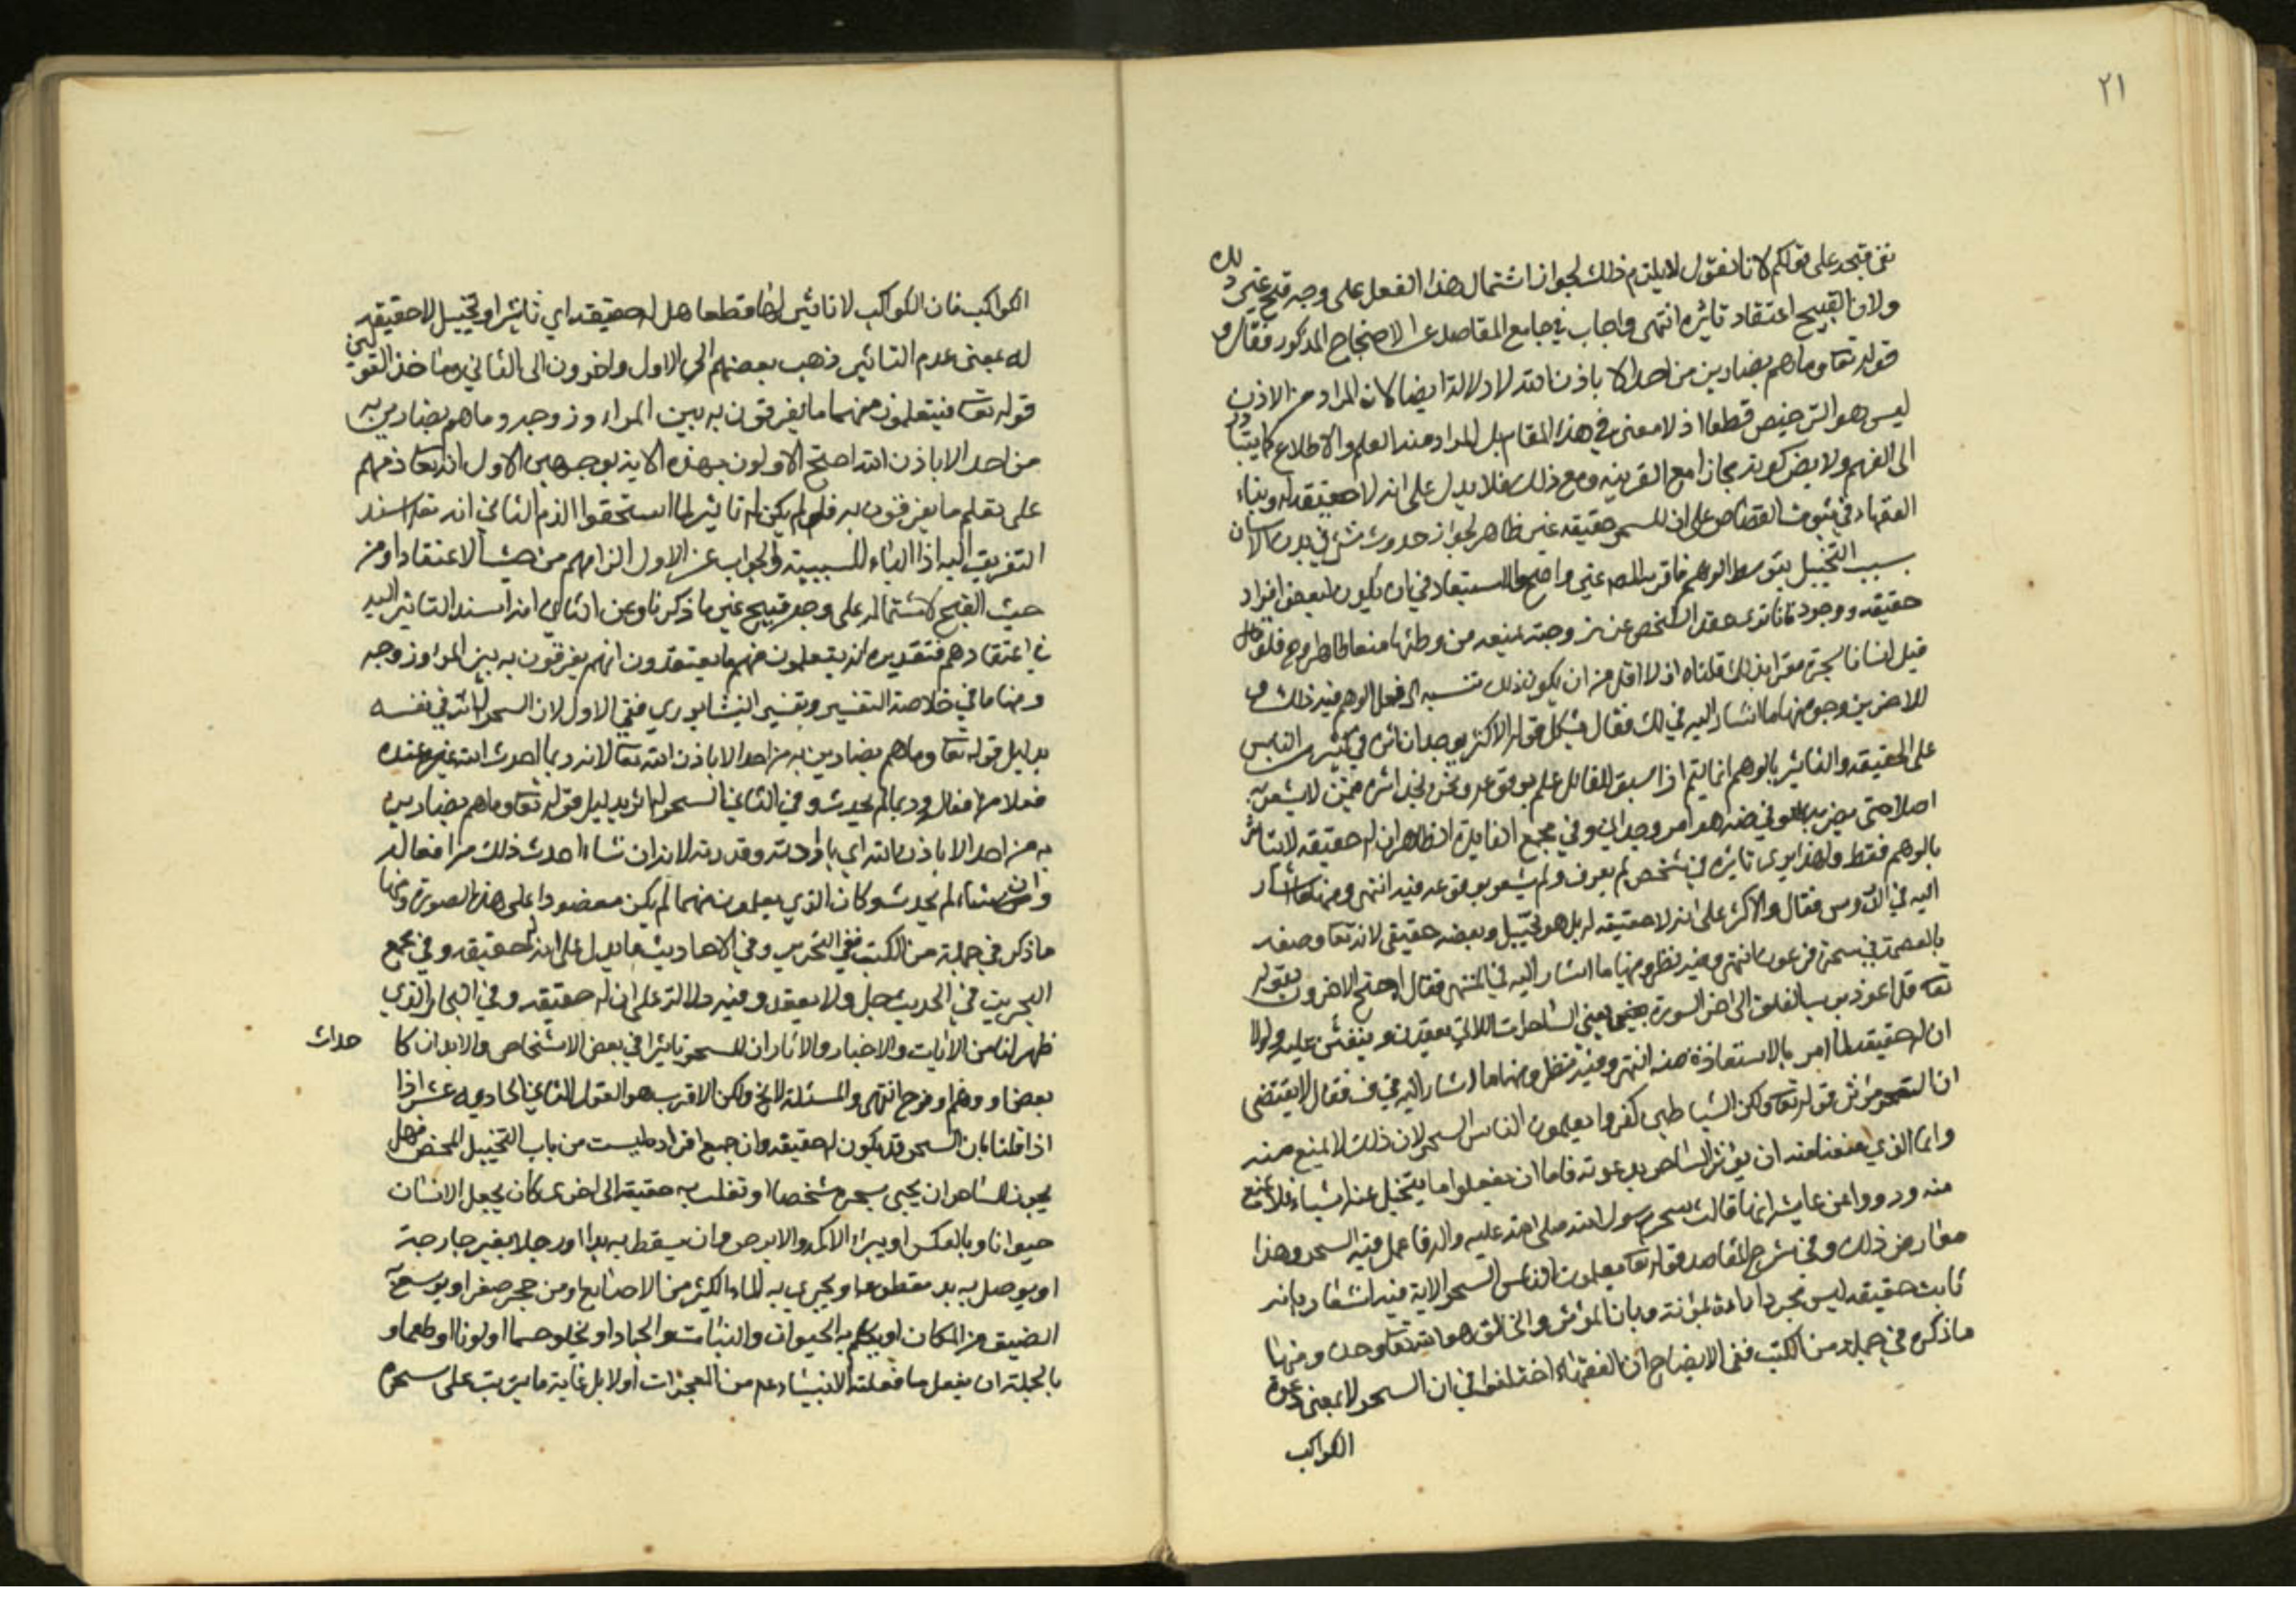 ٢١
على قولكم لانا نقول لا يلزم ذلك لجواز اشتمال هذا الفعل على وجه قبح غير ذلك
ولان القبيح اعتقاد تاثيره انتهى واجاب في جامع المقاصد عن الاحتجاج المذكور فقال و
قوله تعا وما هم بضارين من احد الا باذن الله لا دلالة ايضا لان المراد من الاذن
ليس هو الترخيص قطعا اذ لا معنى في هذا المقام بل المراد منه العلم والاطلاع كما يتبادر
الى الفهم ولا يضر كونه مجازا مع القرينه ومع ذلك فلا يدل على انه لا حقيقه له وبناء
الفقهاء في ثبوت القصاص على ان للسحر حقيقه غير ظاهر لجواز حدوث شئ في بدن الانسان
بسبب التخييل بتوسط الوهم غير واضح والاستبعاد في ان يكون لبعض افراد
حقيقه ووجود فانا نرى عقد الشخص عن زوجته يمنعه من وطئها منعا ظاهرا فلو
قيل لنا بذلك قلناه اذ لا اقل من ان يكون ذلك نسبه الى فعل الوهم فيه ذلك و
للاخرين وجوه منها ما اشار اليه في لك فقال يشكل قول الاكثر بوجدان اثره في كثير من الناس
على الحقيقه والتاثير بالوهم انما يتم اذا سبق للقائل علم بوقوعه ونحن نجد اثره فيمن لا يشعر به
اصلا حتى يضر به وفي ضه هو امر وجداني وفي مجمع الفايده الظاهر ان له حقيقه لا يتاثر
بالوهم فقط ولهذا يرى تاثيره في شخص لم يعرف ولم يشعر بوقوعه فيه انتهى ومنها ما اشار
اليه في الدروس فقال والاكثر على انه لا حقيقه له بل هو تخييل وبعضه حقيقي لانه تعا وصفه
بالعصمة في سحرة فرعون انتهى وفيه نظر ومنها ما اشار اليه في المنتهى فقال احتج الاخرون بقوله
تعا قل اعوذ برب الفلق الى اخر السورة يعني الساحرات اللاتي يعقدن وينفثن عليه ولولا
ان له حقيقه لما امر بالاستعاذة منه انتهى وفيه نظر ومنها ما اشار اليه في ف فقال لا يقتضى
ان السحر مؤثر قوله تعا ولكن الشياطين كفروا يعلمون الناس السحر لان ذلك لا يمنع منه
وانما الذي منعنا منه ان يؤثر الساحر بدعوته فاما ان يفعلوا ما يتخيل عنه اشياء فلا يمنع
منه ورووا عن عايشه انها قالت سحر رسول الله صلى الله عليه واله فما عمل فيه السحر وهذا
معارض ذلك وفي شرح المقاصد قوله تعا يعلمون الناس السحر الاية فيه اشعار بانه
ثابت حقيقه ليس مجرد اراءة تمويه وبان المؤثر والخالق هو الله تعا وحده ومنها
ما ذكره في جملة من الكتب ففي الايضاح ان الفقهاء اختلفوا في ان السحر لا بمعنى دعوة
الكواكب
الكواكب فان الكواكب لا تاثير لها قطعا هل له حقيقه اي تاثير او تخييل لا حقيقه
له بمعنى عدم التاثير ذهب بعضهم الى الاول واخرون الى الثاني وماخذ القولين
قوله تعا فيتعلمون منهما ما يفرقون به بين المراء وزوجه وما هم بضارين به
من احد الا باذن الله احتج الاولون بهذه الاية بوجهين الاول انه تعا ذمهم
على تعلم ما يفرقون به فلو لم يكن له تاثير لما استحقوا الذم الثاني انه تعا اسند
التفريق اليه اذ الباء للسببية والجواب عن الاول الزامهم من حيث الاعتقاد او من
حيث القبح لاشتماله على وجه قبيح غير ما ذكرنا وعن الثاني انه اسند التاثير اليه
في اعتقادهم فتقديره انه يتعلمون منهما ما يعتقدون انهم يفرقون به بين المراء وزوجه
ومنها ما في خلاصة التفسير وتفسير النيشابوري ففي الاول لان السحر له اثر في نفسه
بدليل قوله تعا وما هم بضارين به من احد الا باذن الله تعا لانه ربما احدث الله عنده
فعلا من افعاله وربما لم يحدث وفي الثاني السحر له اثر بدليل قوله تعا وما هم بضارين
به من احد الا باذن الله اي بارادته وقدرته لانه ان شاء احدث ذلك من افعاله
وان شاء لم يحدث وكان الذي يعلمون منهما لم يكن مقصودا على هذه الصورة ومنها
ما ذكر في جملة من الكتب ففي التحرير وفي الاحاديث ما يدل على ان له حقيقه وفي مجمع
البحرين في الحديث حل ولا يعقد وفيه دلالة على ان له حقيقه وفي البحار الذي
ظهر لنا من الايات والاخبار والاثار ان للسحر تاثيرا في بعض الاشخاص والابدان كاحداث
بعض او وهم او فرح انتهى والمسئلة لا تخ ولكن الاقرب هو القول الثاني الحادي عشر اذا
اذا قلنا بان السحر قد يكون له حقيقه وان جميع افراده ليست من باب التخييل المحض فهل
يجوز للساحر ان يحيى بسحره شخصا او تقلب به حقيقة الى اخرى كان يجعل الانسان
حيوانا وبالعكس او يبراء الاكمه والابرص وان يسقط به يدا او رجلا بغير جارحة
او يوصل به يد مقطوعه او يجري به الماء الكثير من الاصابع او من حجر صغير او يوسع به
الضيق من المكان او يكلم به الحيوان والنبات والجماد او يخلق جسما او لونا او طعما و
بالجملة ان يفعل ما فعلته الانبياء عم من المعجزات او لا بل غاية ما يترتب على سحره